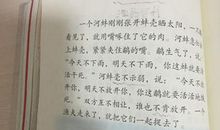 一个河蚌刚刚张开蚌壳晒太阳，一只
看见了，就用嘴啄住了它的肉。河蚌急忙
上蚌壳，紧紧夹住鹬的嘴。鹬生气了，说
“今天不下雨，明天不下雨，你这蚌就要
活干死。”河蚌毫不示弱，说：“今天不放
你，明天不放开你，你这鹬就要活活地饿
死。”双方互不相让，谁也不肯放开。一个
渔夫走来了，就把它们一起捉去了。